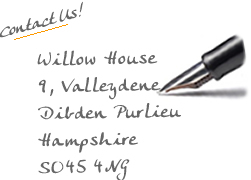 Contact Us!
Willow House
9, Valleydene
Dibden Purlieu
Hampshire
SO45 4NG